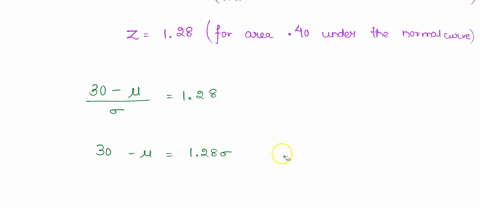 Z = 1.28 (for area .40 under the normal curve)
30 - μ / σ = 1.28
30 - μ = 1.28σ